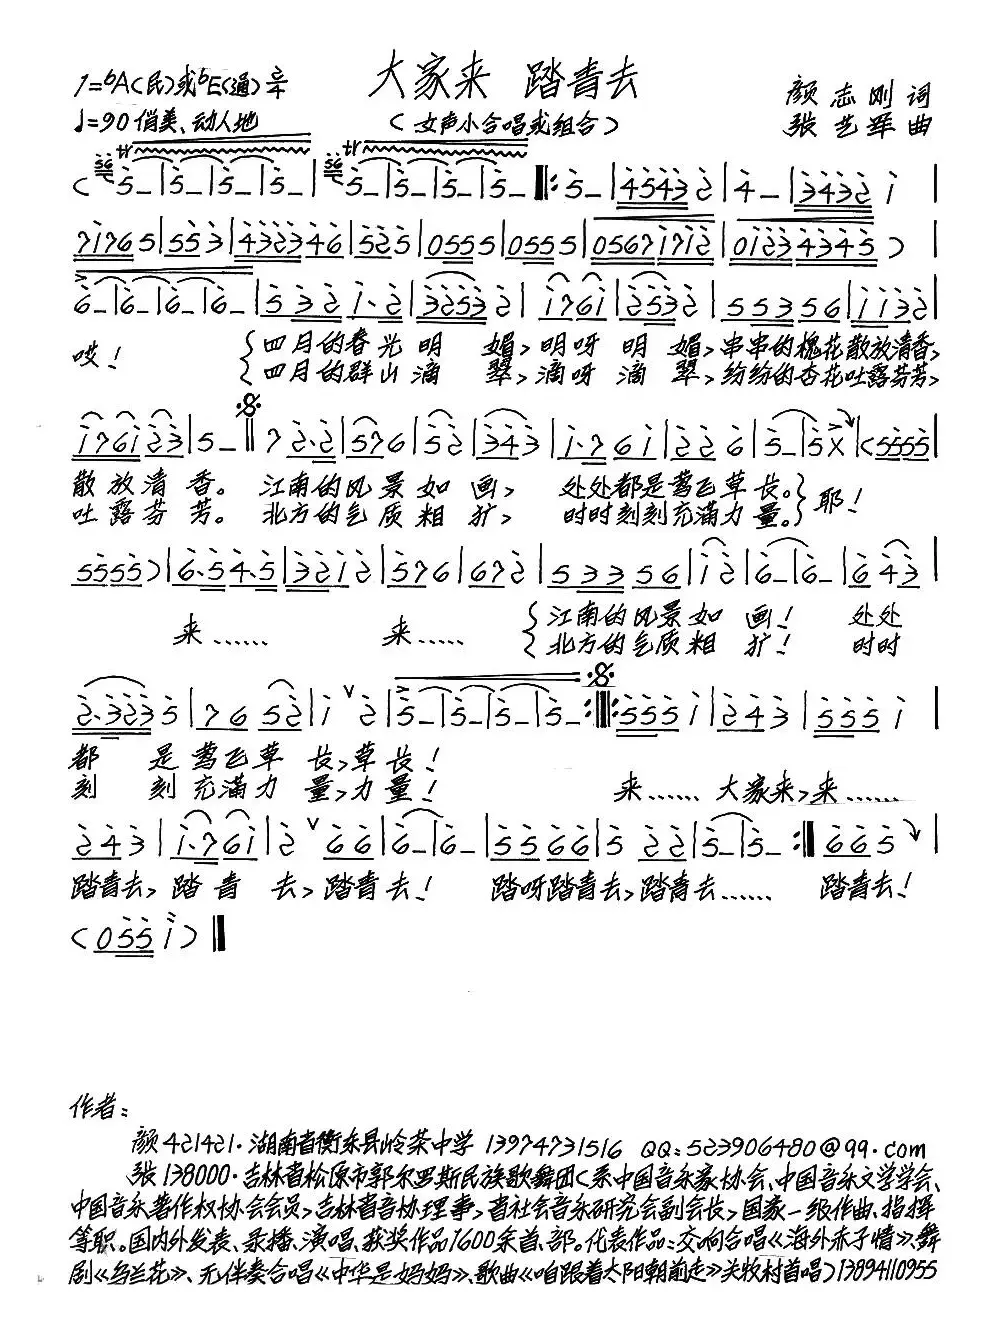 大家来 踏青去
1=♭A(民)或♭E(通)
颜志刚 词
♩=90 俏美、动人地
(女声小合唱或组合)
张艺军 曲
哎!
四月的春光明 媚,明呀 明 媚,串串的槐花散放清香,
四月的群山滴 翠,滴呀 滴 翠,纷纷的杏花吐露芬芳,
散放清 香。 江南的风景如 画, 处处都是莺飞草长。
吐露芬 芳。 北方的气质粗 犷, 时时刻刻充满力量。 耶!
来…… 来…… 江南的风景如 画! 处处
北方的气质粗 犷! 时时
都 是莺飞草 长,草长!
刻 刻充满力 量,力量! 来…… 大家来,来……
踏青去,踏青 去,踏青去! 踏呀踏青去,踏青去…… 踏青去!
作者:
颜421421·湖南省衡东县岭茶中学 13974731516 QQ:523906480@qq.com
张138000·吉林省松原市郭尔罗斯民族歌舞团(系中国音乐家协会、中国音乐文学学会、
中国音乐著作权协会会员,吉林省音协理事,省社会音乐研究会副会长,国家一级作曲、指挥
等职。国内外发表、录播、演唱、获奖作品1600余首、部。代表作品:交响合唱《海外赤子情》、舞
剧《乌兰花》、无伴奏合唱《中华是妈妈》、歌曲《咱跟着太阳朝前走》关牧村首唱)13894110955